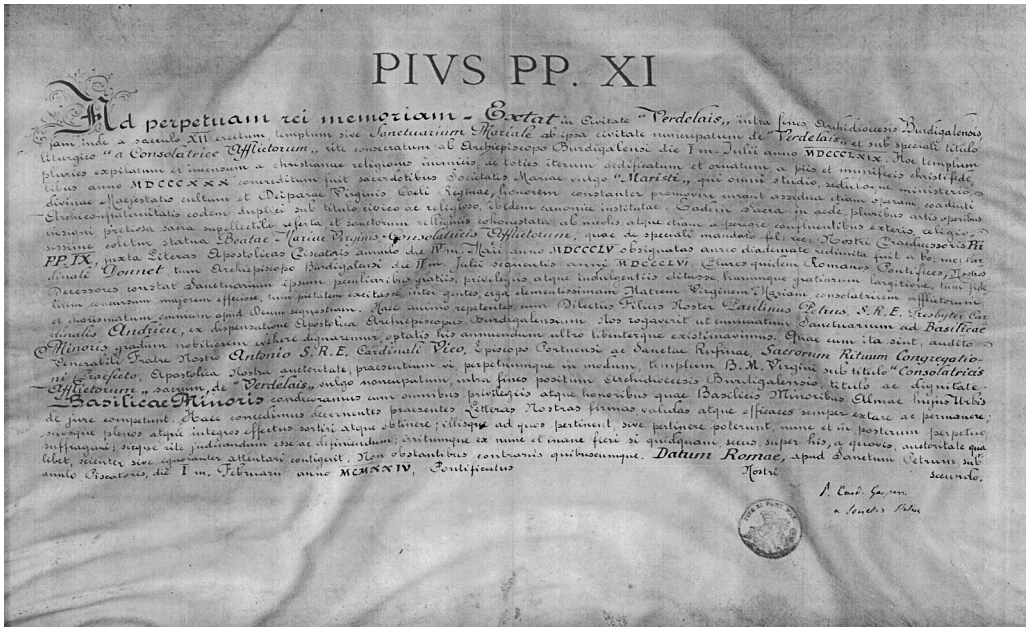 PIVS PP. XI
Ad perpetuam rei memoriam - Extat in Civitate "Verdelais,, intra fines Archidiocesis Burdigalensis,
jam inde a saeculo XII erectum, templum sive Sanctuarium Mariale ab ipsa civitate nuncupatum de "Verdelais,, et sub speciali titulo
liturgico "a Consolatrice Afflictorum,, rite consecratum ab Archiepiscopo Burdigalensi die I m. Julii anno MDCCCLXIX. Hoc templum
pluries expilatum et incensum a christianae religionis inimicis, ac toties iterum aedificatum et ornatum a piis et munificis christifide-
libus anno MDCCCXXX concreditum fuit sacerdotibus Societatis Mariae vulgo "Maristi,, qui omni studio, seduloque ministerio
divinae Majestatis cultum et Deiparae Virginis Coeli Reginae, honorem constanter promovere curant assidua etiam operam, coadiuti
Archiconfraternitatis eodem duplici sub titulo civico ac religioso, ibidem canonice institutae. Eadem Sacra in aede, pluribus artis operibus
pretiosa sacra supellectile referta, et sanctorum reliquiis cohonestata, ab incolis atque etiam a peregre confluentibus exteris, religio-
sissime colitur statua Beatae Mariae Virginis, Consolatricis Afflictorum, quae de speciali mandato fel: rec: Nostri Praedecessoris Pii
PP. IX, juxta Literas Apostolicas Piscatoris annulo die IV m. Maii anno MDCCCLV obsignatas aureo diademate redimita fuit a bo: me: Car-
dinali Donnet tum Archiepiscopo Burdigalensi die II m. Julii sequentis anni MDCCCLVI. Plures quidem Romanos Pontifices, Nostros
Decessores constat Sanctuarium ipsum peculiaribus gratiis, privilegiis atque indulgentiis ditasse harumque gratiarum largitione, tum fide-
lium concursum majorem effecisse, tum pietatem excitasse inter gentes, erga clementissimam Matrem Virginem Mariam consolatricem afflictorum
et charismatum omnium apud Deum sequestram. Haec animo repetentes, cum Dilectus Filius Noster Paulinus Petrus, S.R.E. Presbyter Car-
dinalis Andrieu, ex dispensatione Apostolica Archiepiscopus Burdigalensium Nos rogaverit ut enunciatum Sanctuarium ad Basilicae
Minoris gradum nobiliorem evehere dignaremur, optatis his annuendum ultro libenterque existimavimus. Quae cum ita sint, audito
Venerabili Fratre Nostro Antonio S.R.E. Cardinali Vico, Episcopo Portuensi ac Sanctae Rufinae, Sacrorum Rituum Congregatio-
ni Praefecto, Apostolica Nostra auctoritate, praesentium vi, perpetuumque in modum, templum B.M. Virgini sub titulo "Consolatrias
Afflictorum,, sacrum, de "Verdelais,, vulgo noncupatum, intra fines positum Archidiocesis Burdigalensis, titulo ac dignitate
Basilicae Minoris condecoramus cum omnibus privilegiis atque honoribus quae Basilicis Minoribus Almae hujus Urbis
de jure competunt. Haec concedimus decernentes praesentes Litteras Nostras firmas validas atque efficaces semper extare ac permanere;
suosque plenos atque integros effectus sortiri atque obtinere; illisque ad quos pertinent, sive pertinere poterunt, nunc et in posterum perpetuo
suffragari; sicque rite judicandum esse ac definiendum; irritumque ex nunc et inane fieri si quidquam secus, super his, a quovis, auctoritate qua-
libet, scienter sive ignoranter attentari contigerit. Non obstantibus contrariis quibuscumque. Datum Romae, apud Sanctum Petrum sub
annulo Piscatoris, die I m. Februarii anno MCMXXIV, Pontificatus Nostri secundo.
P. Card. Gasparri
a Secretis Status